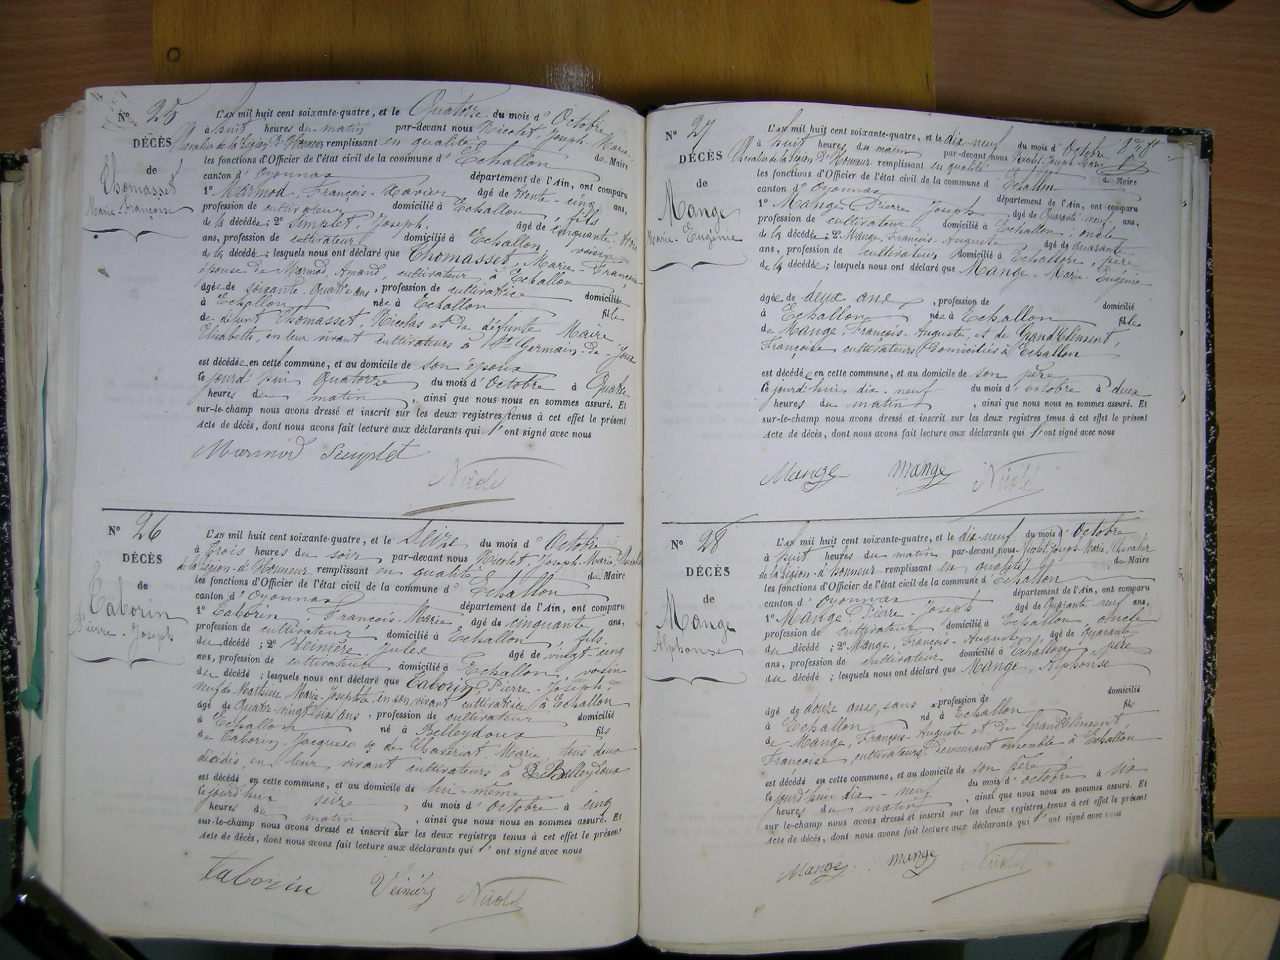 N° 25
DÉCÈS
de
Thomasset
Marie Françoise
L'AN mil huit cent soixante-quatre, et le Quatorze du mois d'Octobre
à huit heures du matin par-devant nous Nicolet, Joseph, Marie
Chevalier de la Légion d'Honneur remplissant en qualité de Maire
les fonctions d'Officier de l'état civil de la commune d'Echallon
canton d'Oyonnax département de l'Ain, ont comparu
1° Marmod, François-Xavier âgé de trente-cinq ans,
profession de cultivateur domicilié à Echallon, fils
de la décédée; 2° Simplet, Joseph, âgé de cinquante-trois
ans, profession de cultivateur domicilié à Echallon, voisin
de la décédée; lesquels nous ont déclaré que Thomasset, Marie-Françoise
épouse de Marmod, Amand, cultivateur à Echallon
âgée de soixante-quatre ans, profession de cultivatrice domiciliée
à Echallon née à Echallon fille
de défunt Thomasset, Nicolas et de défunte Maire
Elisabeth, en leur vivant cultivateurs à St Germain-de-Joux
est décédée, en cette commune, et au domicile de son époux
Ce jourd'hui Quatorze du mois d'Octobre à Quatre
heures du matin, ainsi que nous nous en sommes assuré. Et
sur-le-champ nous avons dressé et inscrit sur les deux registres tenus à cet effet le présent
Acte de décès, dont nous avons fait lecture aux déclarants qui l'ont signé avec nous
Marmod Simplet
Nicolet
N° 26
DÉCÈS
de
Taborin
Pierre-Joseph
L'AN mil huit cent soixante-quatre, et le seize du mois d'Octobre
à trois heures du soir, par-devant nous Nicolet, Joseph, Marie, Chevalier
de la Légion-d'Honneur remplissant en qualité de Maire
les fonctions d'Officier de l'état civil de la commune d'Echallon
canton d'Oyonnax département de l'Ain, ont comparu
1° Taborin, François-Marie âgé de cinquante ans,
profession de cultivateur domicilié à Echallon, fils
du décédé; 2° Veiniére, Jules âgé de vingt cinq
ans, profession de cultivateur domicilié à Echallon, voisin
du décédé; lesquels nous ont déclaré que Taborin, Pierre-Joseph
veuf de Marie Josephte, en son vivant cultivatrice à Echallon
âgé de Quatre vingt trois ans, profession de cultivateur domicilié
à Echallon né à Belleydoux fils
de Taborin, Jacques & de Marie, tous deux
décédés, en leur vivant cultivateurs à Belleydoux
est décédé en cette commune, et au domicile de lui-même
Ce jourd'hui seize, du mois d'octobre à cinq
heures du matin, ainsi que nous nous en sommes assuré. Et
sur-le-champ nous avons dressé et inscrit sur les deux registres tenus à cet effet le présent
Acte de décès, dont nous avons fait lecture aux déclarants qui l'ont signé avec nous
taborin Veiniére Nicolet
N° 27
DÉCÈS
de
Mange
Marie-Eugénie
L'AN mil huit cent soixante-quatre, et le dix-neuf du mois d'Octobre
à huit heures du matin par-devant nous Nicolet, Joseph-Marie
Chevalier de la Légion d'Honneur remplissant en qualité de Maire
les fonctions d'Officier de l'état civil de la commune d'Echallon
canton d'Oyonnax département de l'Ain, ont comparu
1° Mange, Pierre Joseph âgé de Quarante-neuf ans,
profession de cultivateur domicilié à Echallon, oncle
de la décédée; 2° Mange, François-Auguste âgé de quarante
ans, profession de cultivateur domicilié à Echallon, père
de la décédée; lesquels nous ont déclaré que Mange, Marie Eugénie
âgée de deux ans, profession de domicilié
à Echallon née à Echallon fille
de Mange François-Auguste et de GrandClément,
Françoise cultivateurs domiciliés à Echallon
est décédée, en cette commune, et au domicile de son père
Ce jourd'hui dix-neuf du mois d'octobre à deux
heures du matin, ainsi que nous nous en sommes assuré. Et
sur-le-champ nous avons dressé et inscrit sur les deux registres tenus à cet effet le présent
Acte de décès, dont nous avons fait lecture aux déclarants qui l'ont signé avec nous
Mange mange Nicolet
N° 28
DÉCÈS
de
Mange
Alphonse
L'AN mil huit cent soixante-quatre, et le dix-neuf du mois d'Octobre
à huit heures du matin par-devant nous Nicolet Joseph Marie, Chevalier
de la Légion-d'honneur remplissant en qualité de Maire
les fonctions d'Officier de l'état civil de la commune d'Echallon
canton d'Oyonnax département de l'Ain, ont comparu
1° Mange, Pierre-Joseph âgé de Quarante neuf ans,
profession de cultivateur domicilié à Echallon, oncle
du décédé; 2° Mange, François-Auguste, âgé de quarante
ans, profession de cultivateur domicilié à Echallon, père
du décédé; lesquels nous ont déclaré que Mange, Alphonse
âgé de douze ans, sans profession de domicilié
à Echallon né à Echallon fils
de Mange, François-Auguste et de GrandClément
Françoise, cultivateurs demeurant ensemble à Echallon
est décédé en cette commune, et au domicile de son père
Ce jourd'hui dix-neuf du mois d'octobre à
heures du matin, ainsi que nous nous en sommes assuré. Et
sur-le-champ nous avons dressé et inscrit sur les deux registres tenus à cet effet le présent
Acte de décès, dont nous avons fait lecture aux déclarants qui l'ont signé avec nous
Mange mange Nicolet